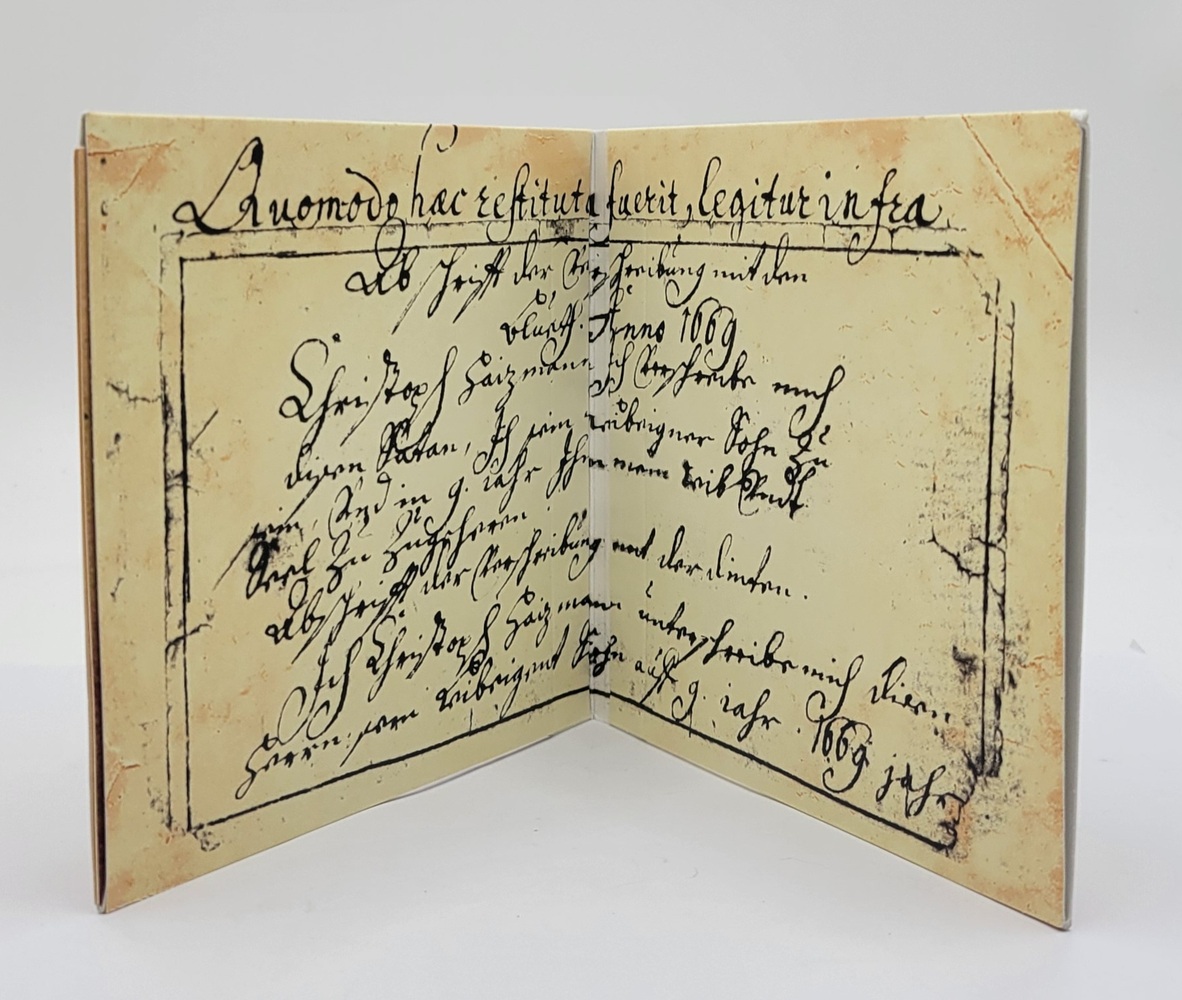 Quomodo hæc restituta fuerit, legitur infra
Abschrifft der Verschreibung mit den
Bluett. Anno 1669
Christoph Haizmann ich Verschreibe mich
disen Satan, Ich sein leibeigner Sohn Zu
sein, Vnd in 9. iahr ihm mein leib Vndt
Seel Zu Zugeheren.
Abschrifft der Verschreibung mit der dinten.
Ich Christoph Haizmann unterschreibe mich disen
Herrn: sein leibeigent Sohn auff 9. iahr. 1669 jahr